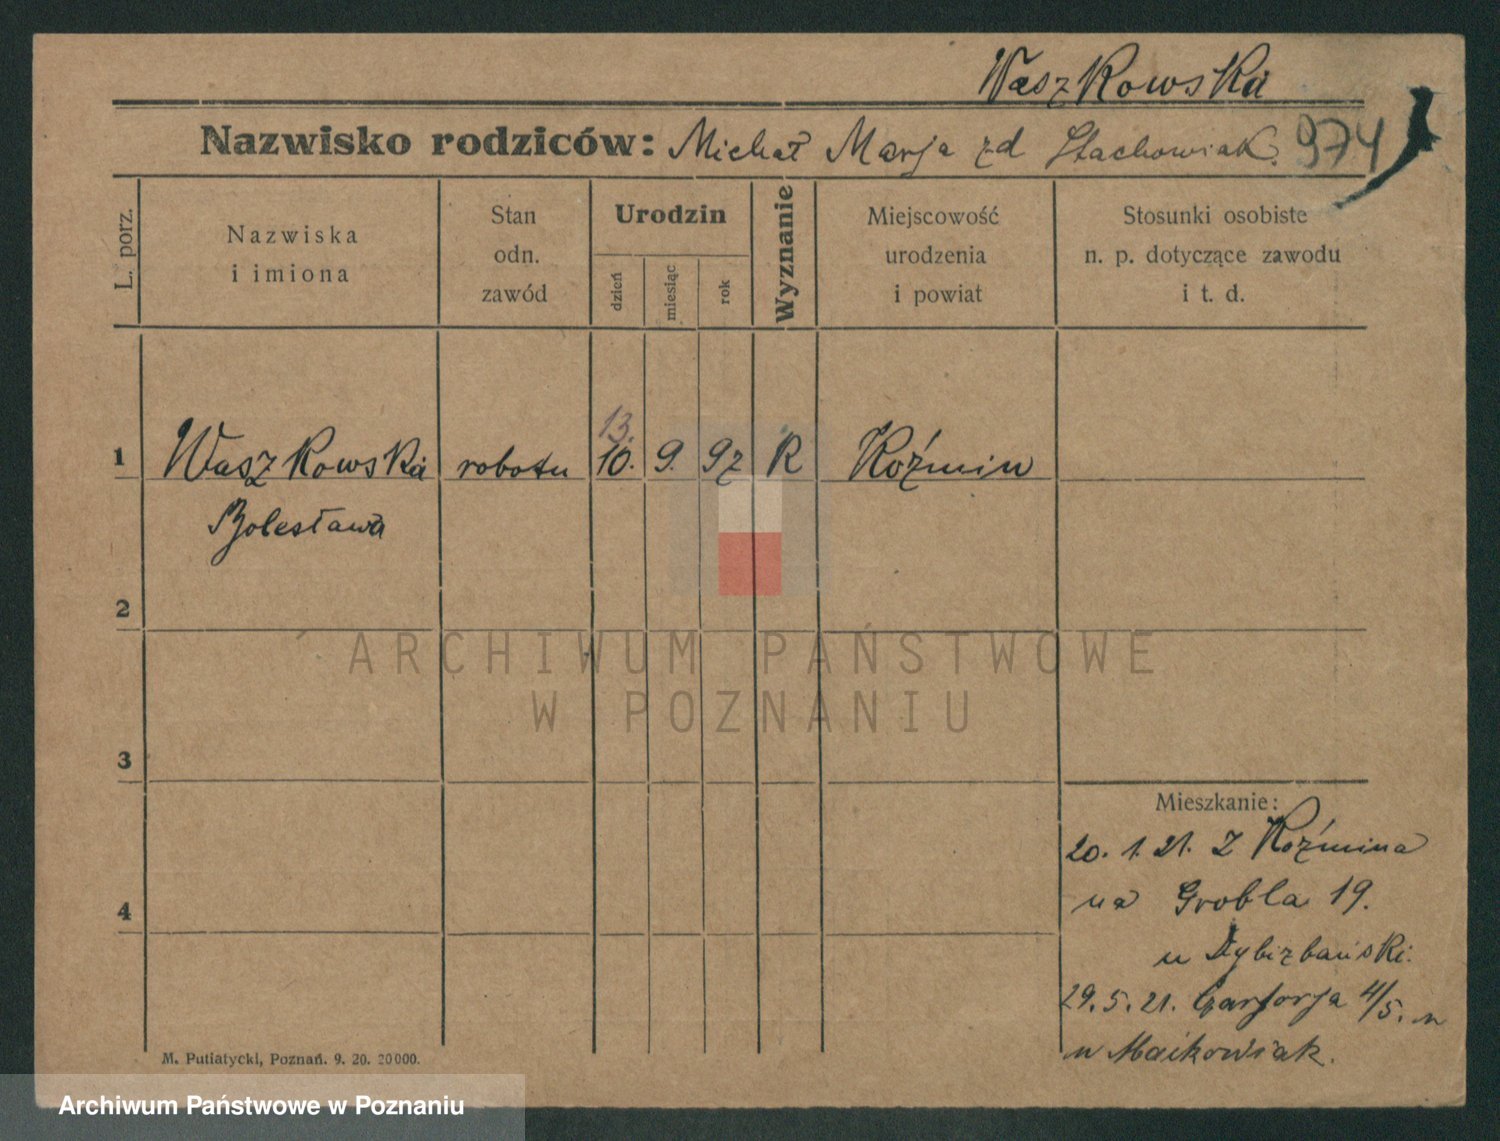 Waszkowska
Nazwisko rodziców: Michał Marja zd Stachowiak. 974
L. porz.
Nazwiska
i imiona
Stan
odn.
zawód
Urodzin
dzień
miesiąc
rok
Wyznanie
Miejscowość
urodzenia
i powiat
Stosunki osobiste
n. p. dotyczące zawodu
i t. d.
13.
1 Waszkowska robotn 10. 9. 97 R Koźmin
Bolesława
2
ARCHIWUM PAŃSTWOWE
W POZNANIU
3
Mieszkanie:
20. 1. 21. z Koźmina
4
na Grobla 19.
u
29. 5. 21. 4/5.
u Maikowiak.
M. Putiatycki, Poznań. 9. 20. 20000.
Archiwum Państwowe w Poznaniu